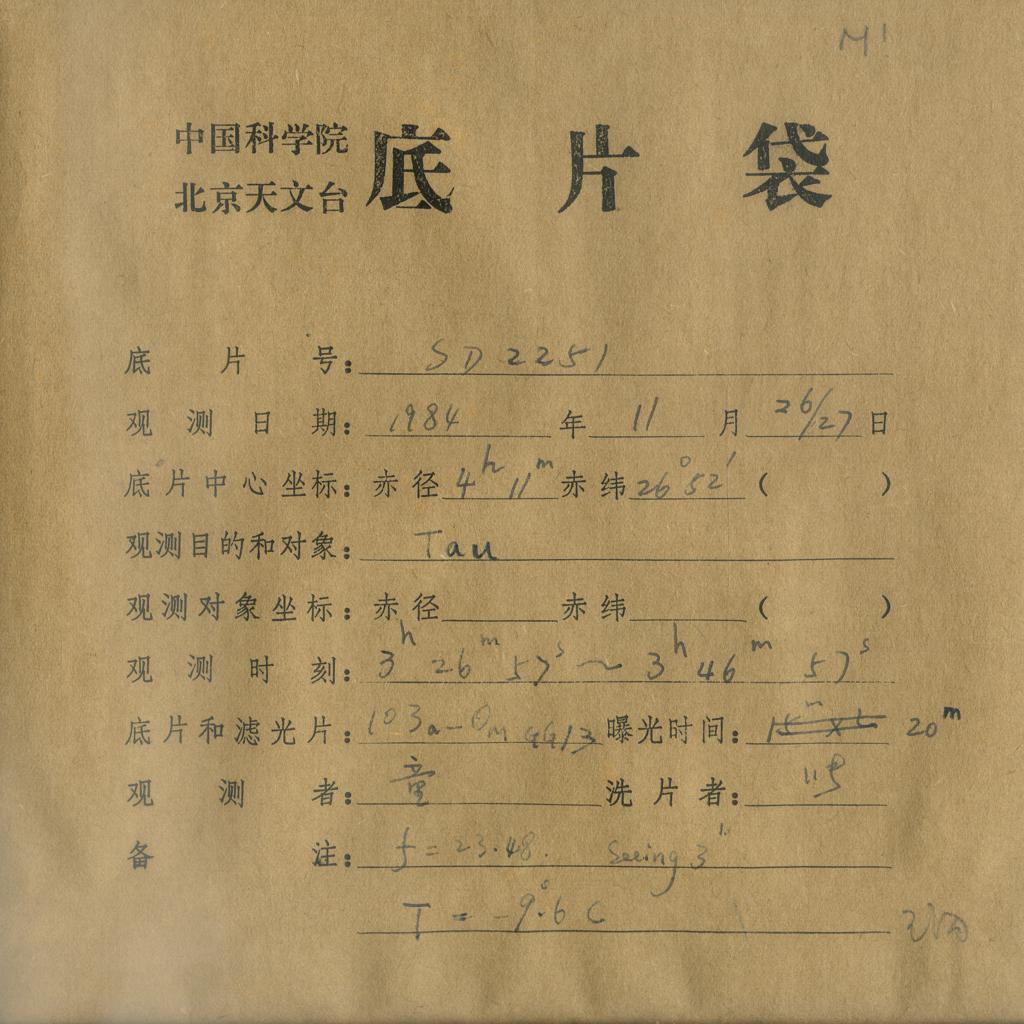 M1
中国科学院
北京天文台
底片袋
底片号: SD2251
观测日期: 1984年11月26/27日
底片中心坐标: 赤径4h11m赤纬26°52′( )
观测目的和对象: Tau
观测对象坐标: 赤径 赤纬 ( )
观测时刻: 3h26m57s~3h46m57s
底片和滤光片: 103a-Om GG13 曝光时间: 20m
观测者: 童 洗片者:
备注: f=23.48. Seeing 3″
T=-9.°6 C